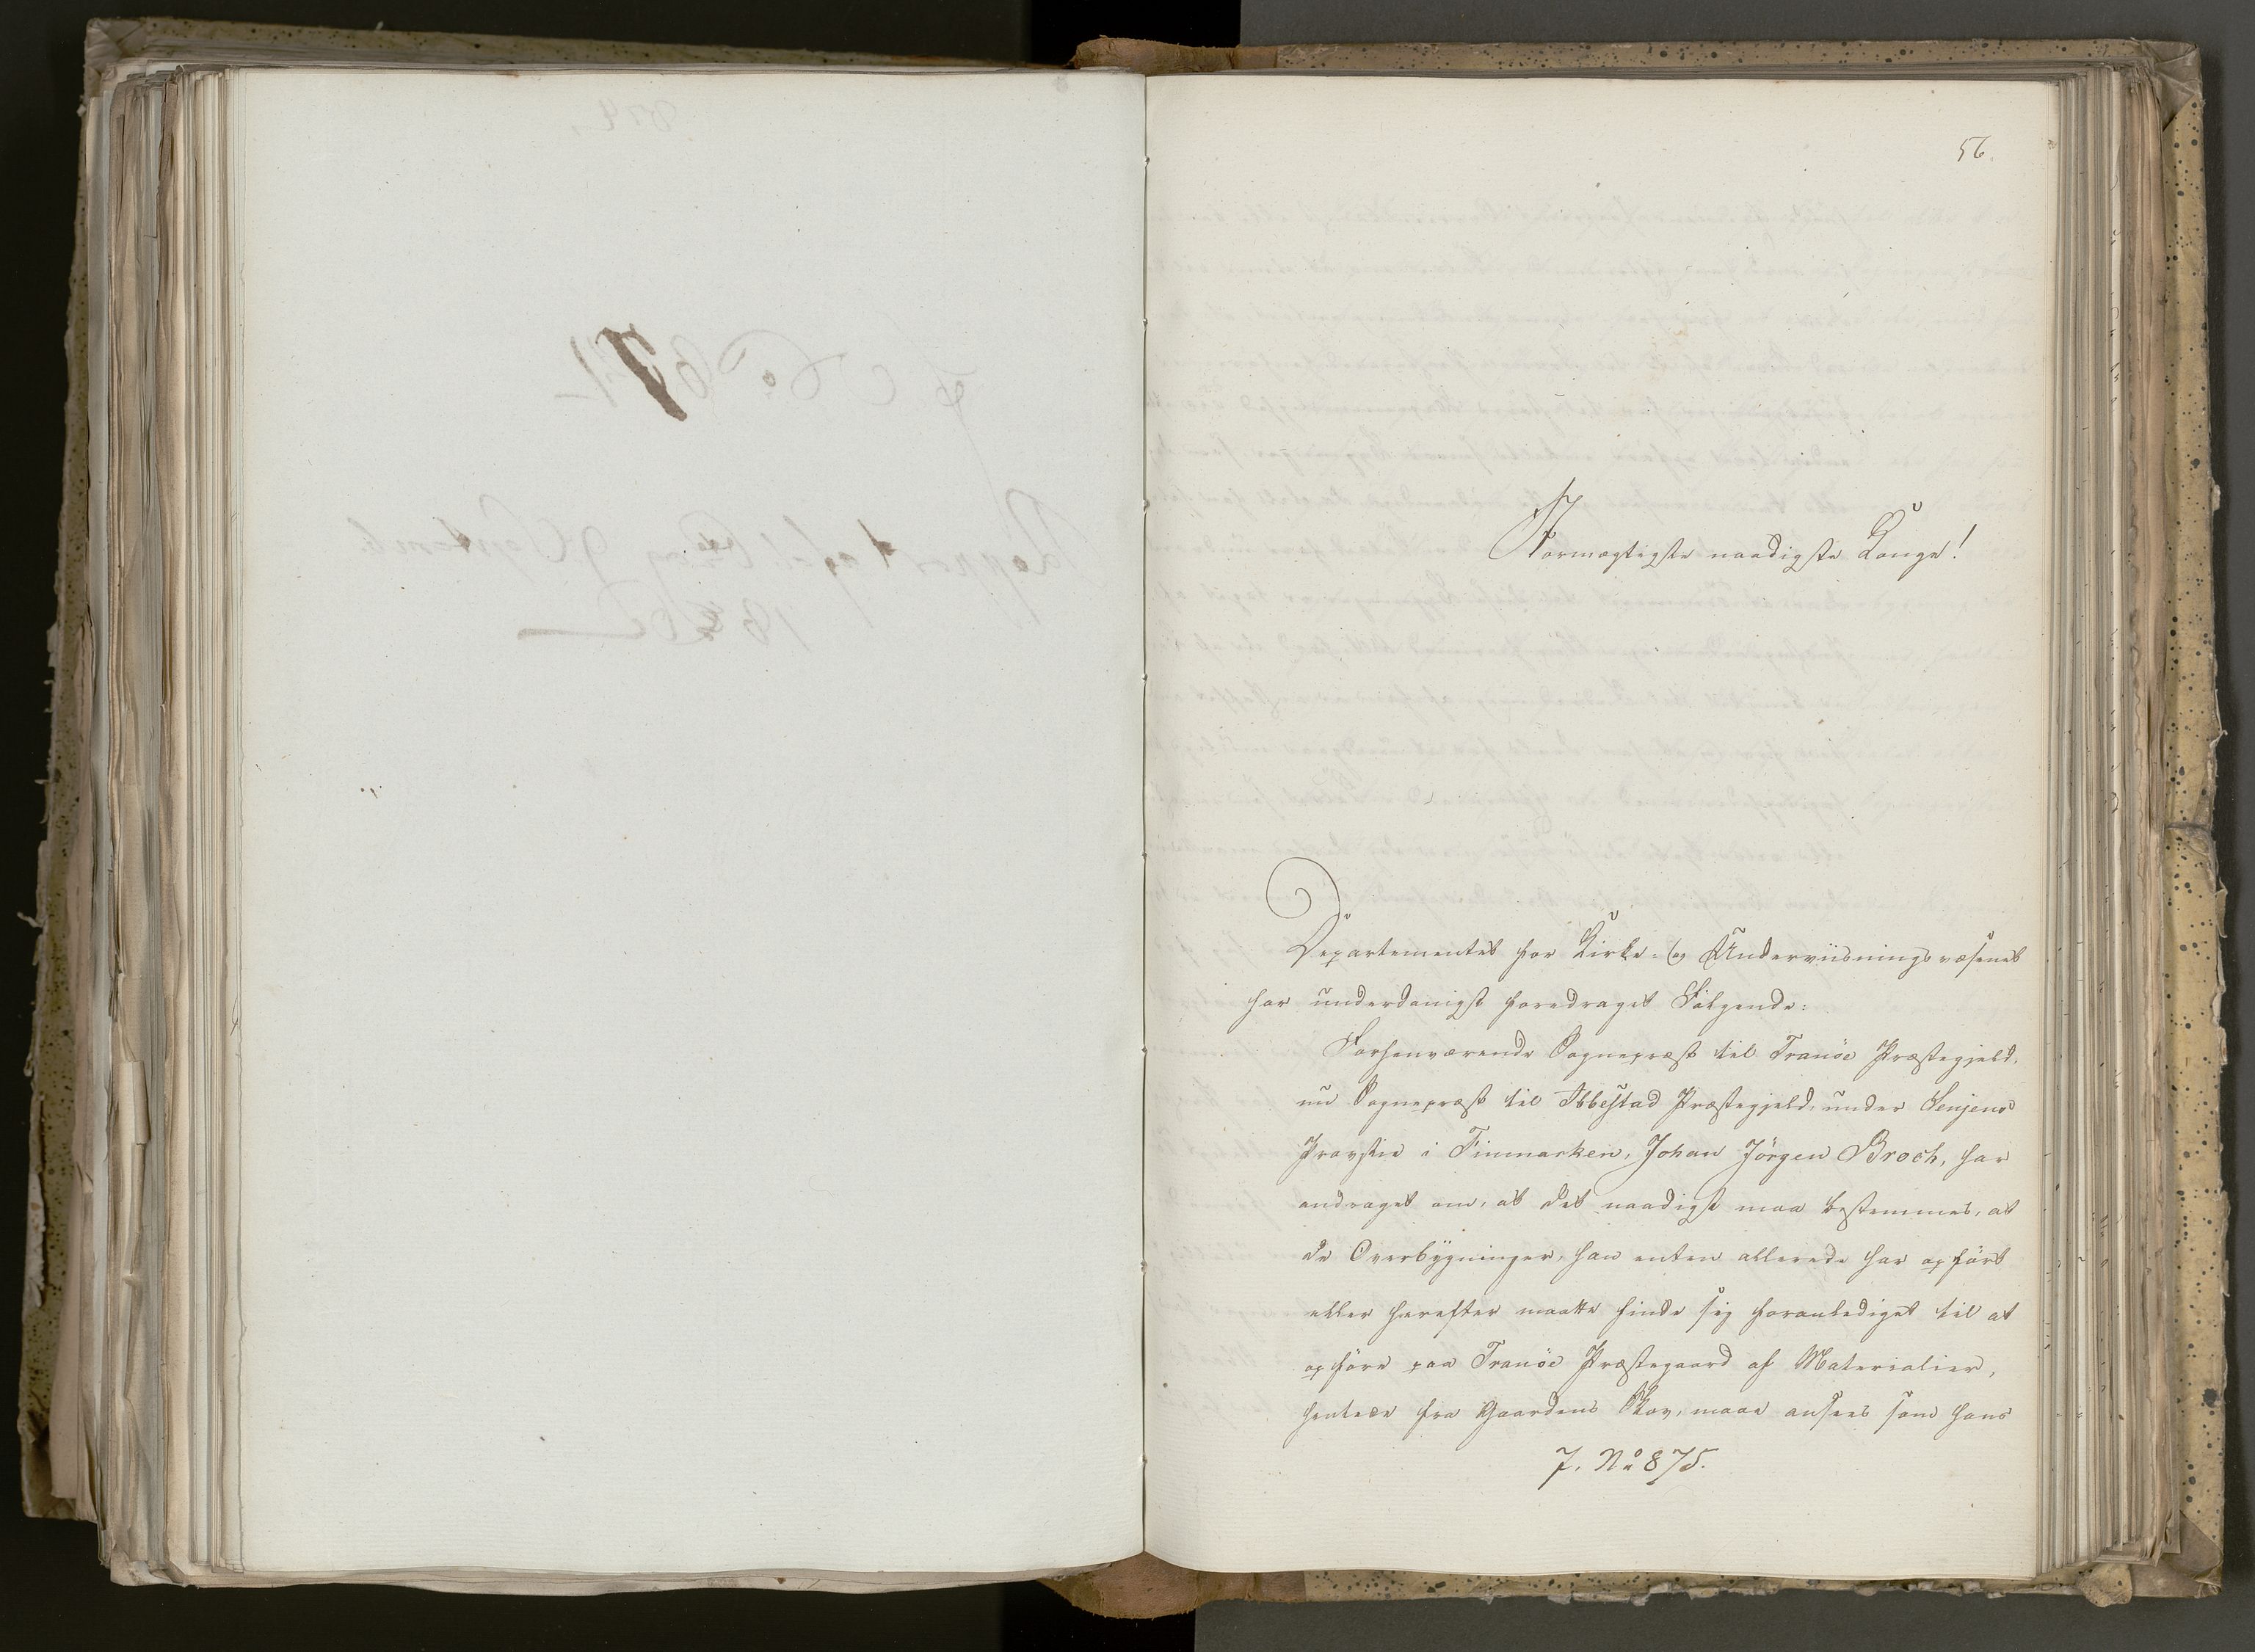 56.
Stormægtigste naadigste Konge!
Departementet for Kirke- og Underviisningsvæsenet
har underdanigst foredraget Følgende:
Forhenværende Sognepræst til Tranöe Præstegjeld,
nu Sognepræst til Ibbestad Præstegjeld, under Senjens
Provstie i Finmarken, Johan Jörgen Broch, har
andraget om, at det naadigst maa bestemmes, at
de Overbygninger, han enten allerede har opført
eller herefter maatte finde sig foranlediget til at
opføre paa Tranöe Præstegaard af Materialier,
hentede fra Gaardens Skov, maae ansees som hans
J. No 875.